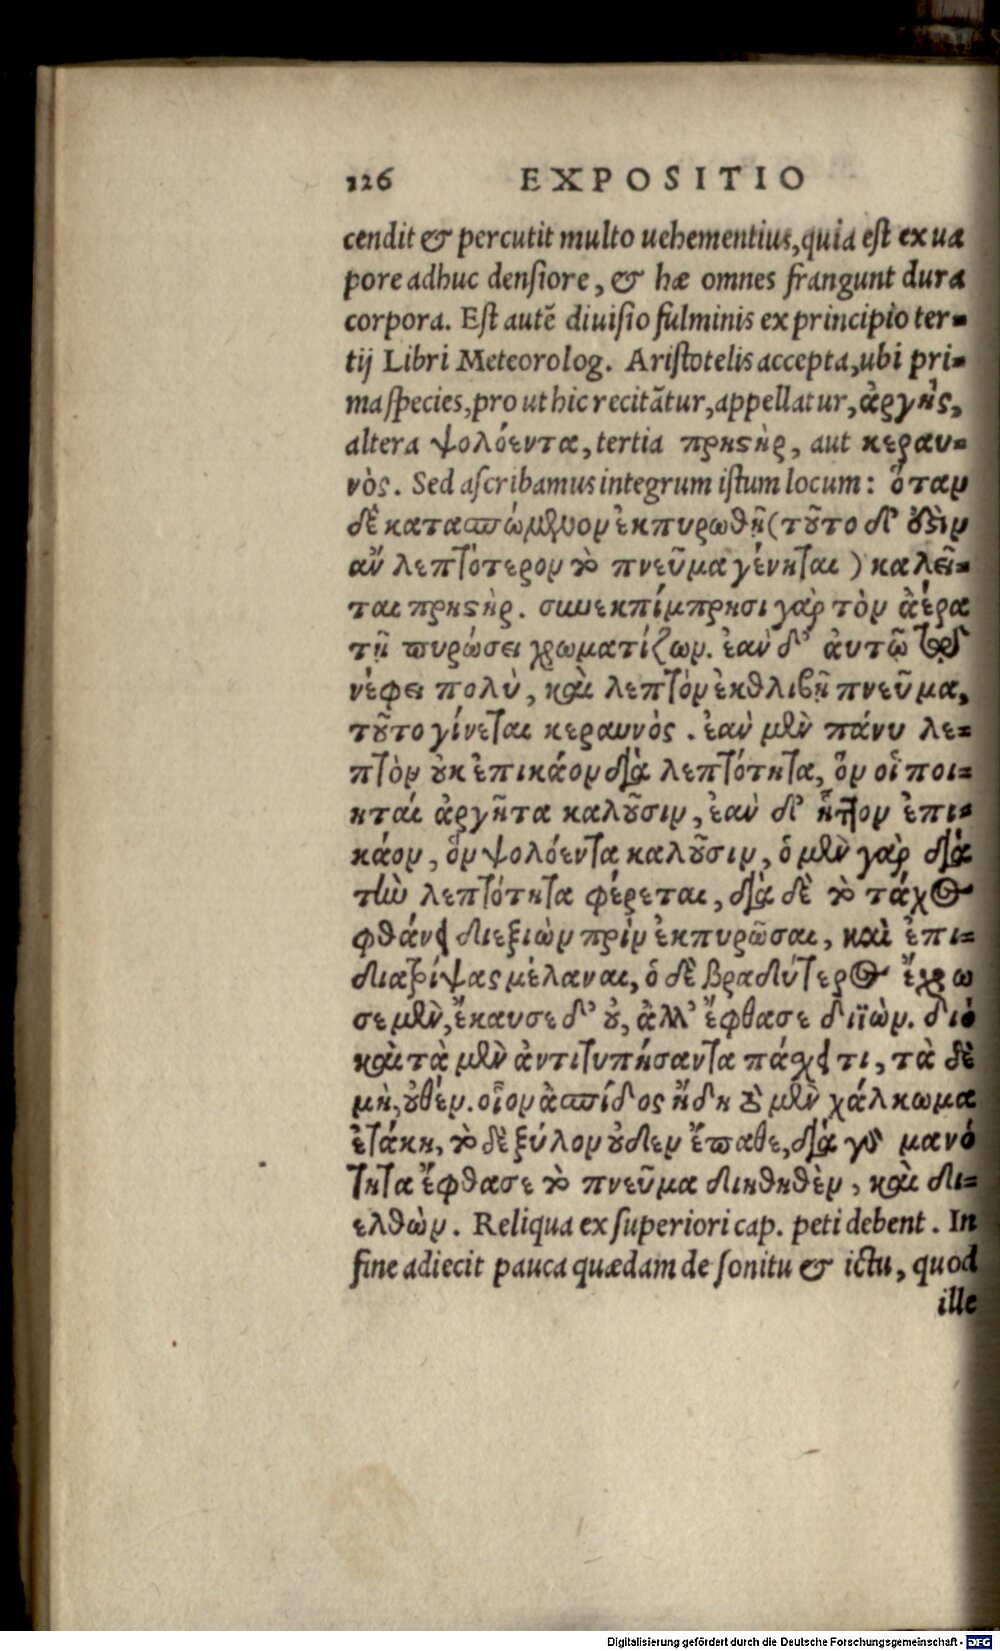 126 EXPOSITIO
cendit & percutit multo uehementius, quia est ex ua
pore adhuc densiore, & hæ omnes frangunt dura
corpora. Est autē diuisio fulminis ex principio ter=
tij Libri Meteorolog. Aristotelis accepta, ubi pri=
ma species, pro ut hic recitātur, appellatur, ἀργὴς,
altera ψολόεντα, tertia πρηςὴρ, aut κεραυ=
νὸς. Sed ascribamus integrum istum locum: ὅταν
δὲ κατασπώμενον ἐκπυρωθῇ (τοῦτο δ' ὅ ἐσιν
ἂν λεπτότερον τὸ πνεῦμα γένηται) καλεῖ=
ται πρηςὴρ. συνεκπίμπρησι γὰρ τὸν ἀέρα
τῇ πυρώσει χρωματίζων. ἐὰν δ' ἀυτῷ τῷ
νέφει πολὺ, καὶ λεπτὸν ἐκθλιβῇ πνεῦμα,
τοῦτο γίνεται κεραυνὸς. ἐὰν μὲν πάνυ λε=
πτὸν οὐκ ἐπικάον διὰ λεπτότητα, ὃν οἱ ποι=
ηταὶ ἀργῆτα καλοῦσιν, ἐὰν δ' ἧττον ἐπι=
κάον, ὃν ψολόεντα καλοῦσιν, ὁ μὲν γὰρ διὰ
τὴν λεπτότητα φέρεται, διὰ δὲ τὸ τάχος
φθάνει διεξιὼν πρὶν ἐκπυρῶσαι, καὶ ἐπι=
διατρίψας μέλαναι, ὁ δὲ βραδύτερος ἔχρω
σε μὲν, ἔκαυσε δ' οὐ, ἀλλ' ἔφθασε διϊὼν. διὸ
καὶ τὰ μὲν ἀντιτυπήσαντα πάχει τι, τὰ δὲ
μὴ, οὐθέν. οἷον ἀσπίδος ἤδη τὸ μὲν χάλκωμα
ἐτάκη, τὸ δὲ ξύλον οὐδεν ἔπαθε, διὰ γὰρ μανό
τητα ἔφθασε τὸ πνεῦμα διηθηθὲν, καὶ δι=
ελθὼν. Reliqua ex superiori cap. peti debent. In
fine adiecit pauca quædam de sonitu & ictu, quod
ille
Digitalisierung gefördert durch die Deutsche Forschungsgemeinschaft - DFG